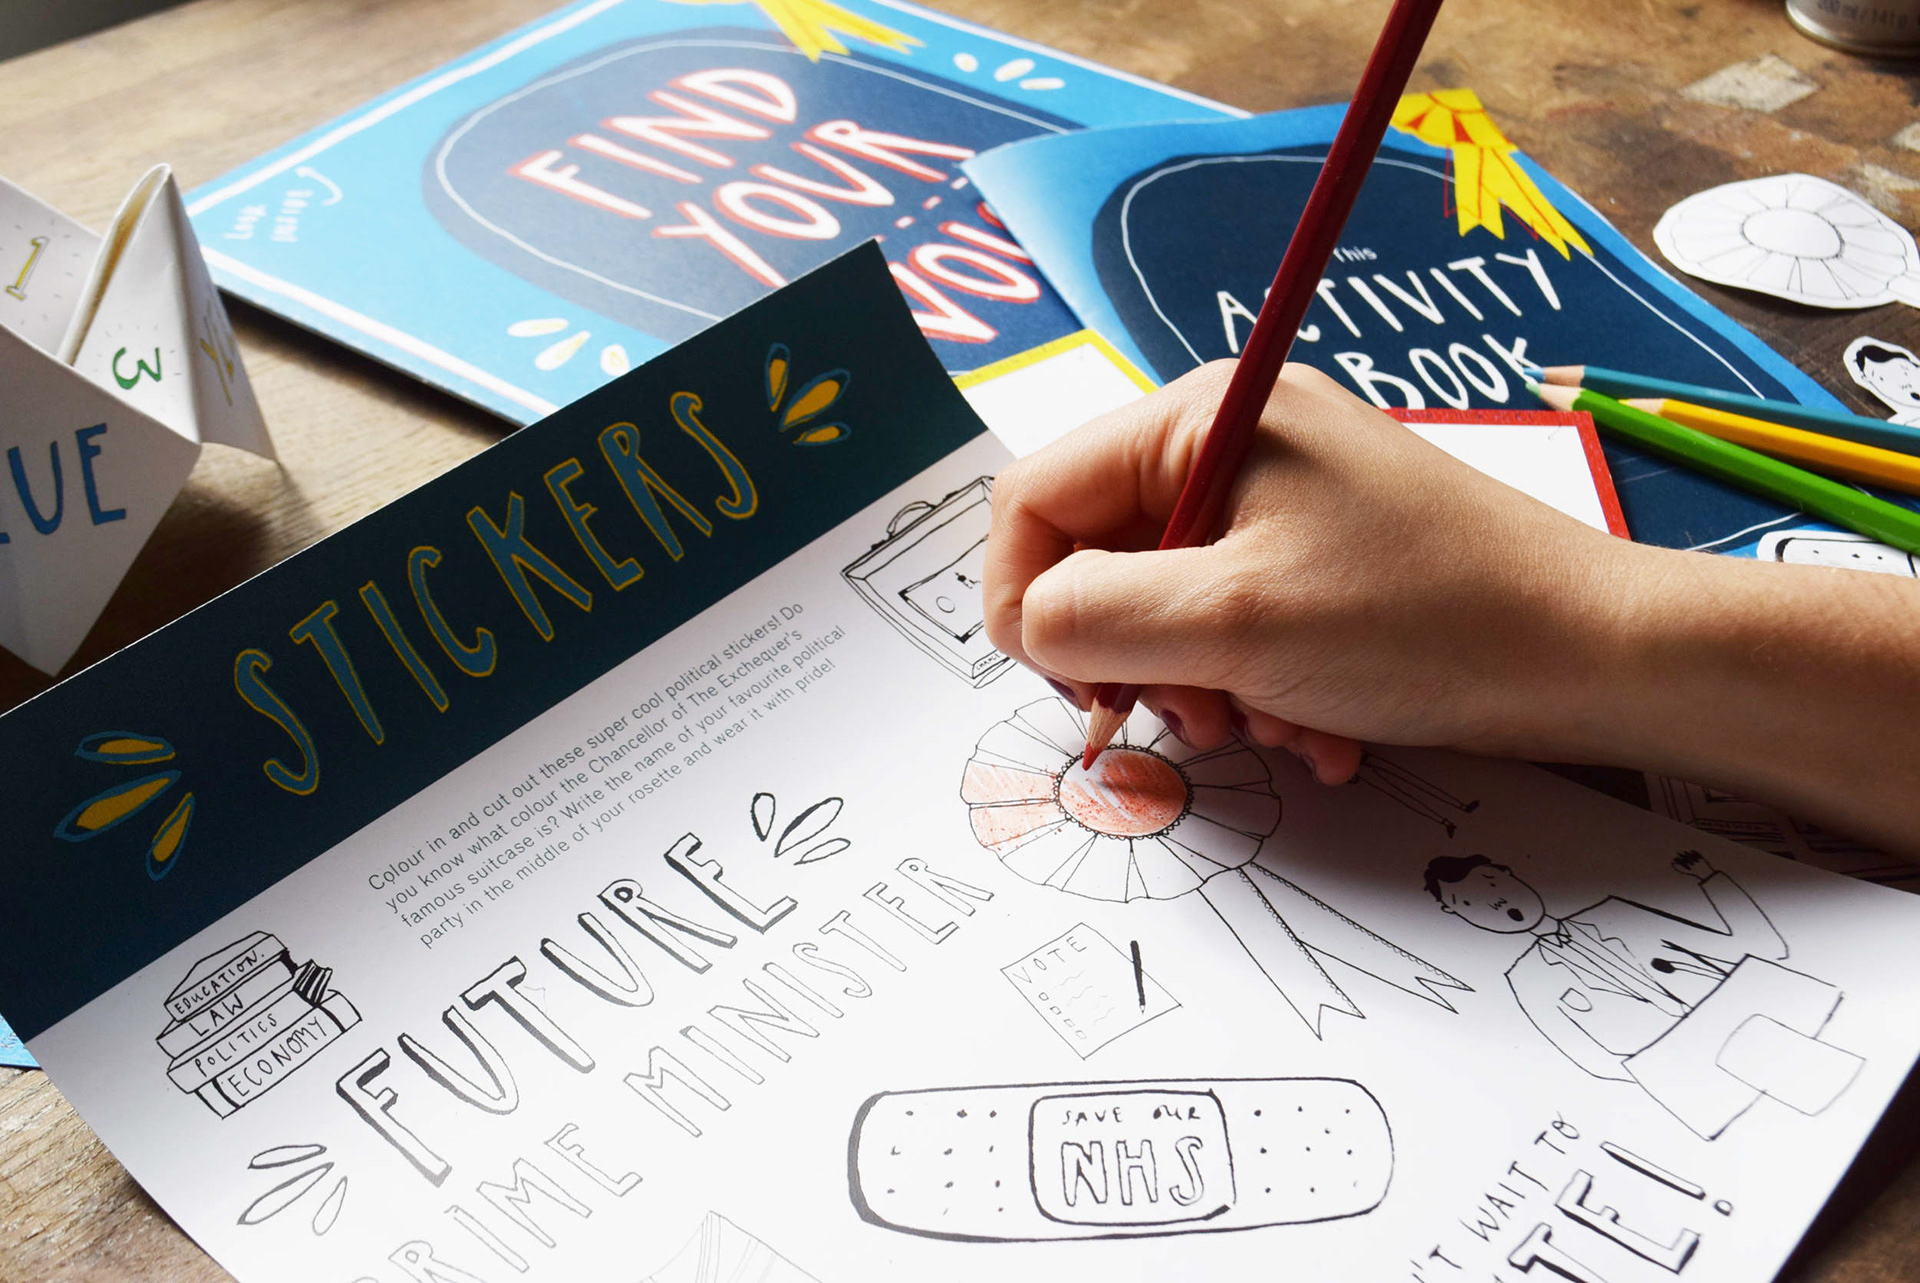 Look
inside
FIND
YOUR
This
ACTIVITY
BOOK
1
3
STICKERS
Colour in and cut out these super cool political stickers! Do
you know what colour the Chancellor of The Exchequer's
famous suitcase is? Write the name of your favourite political
party in the middle of your rosette and wear it with pride!
FUTURE
PRIME MINISTER
EDUCATION.
LAW
POLITICS
ECONOMY
VOTE
SAVE OUR
NHS
WAIT TO